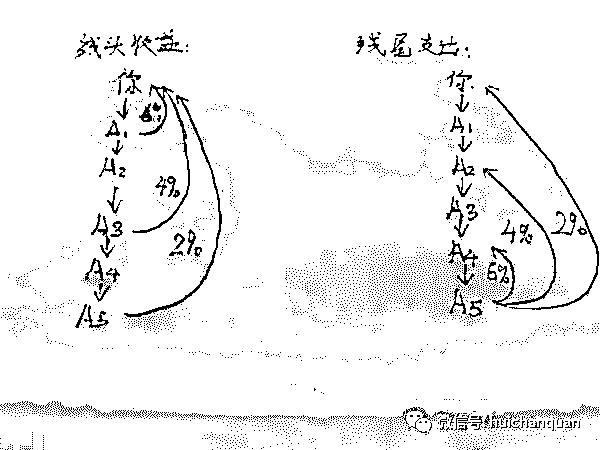 线头收益：
你
A1
A2
A3
A4
A5
6%
4%
2%
线尾支出：
你
A1
A2
A3
A4
A5
6%
4%
2%
微信号:huichanquan